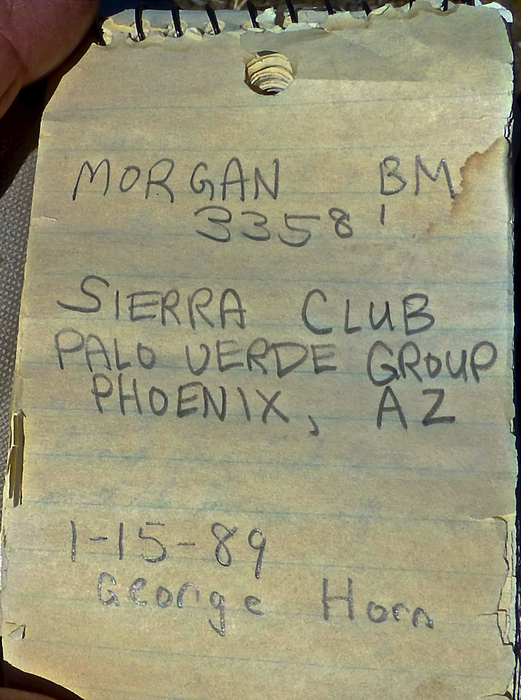 MORGAN BM
3358'
SIERRA CLUB
PALO VERDE GROUP
PHOENIX, AZ
1-15-89
George Horn